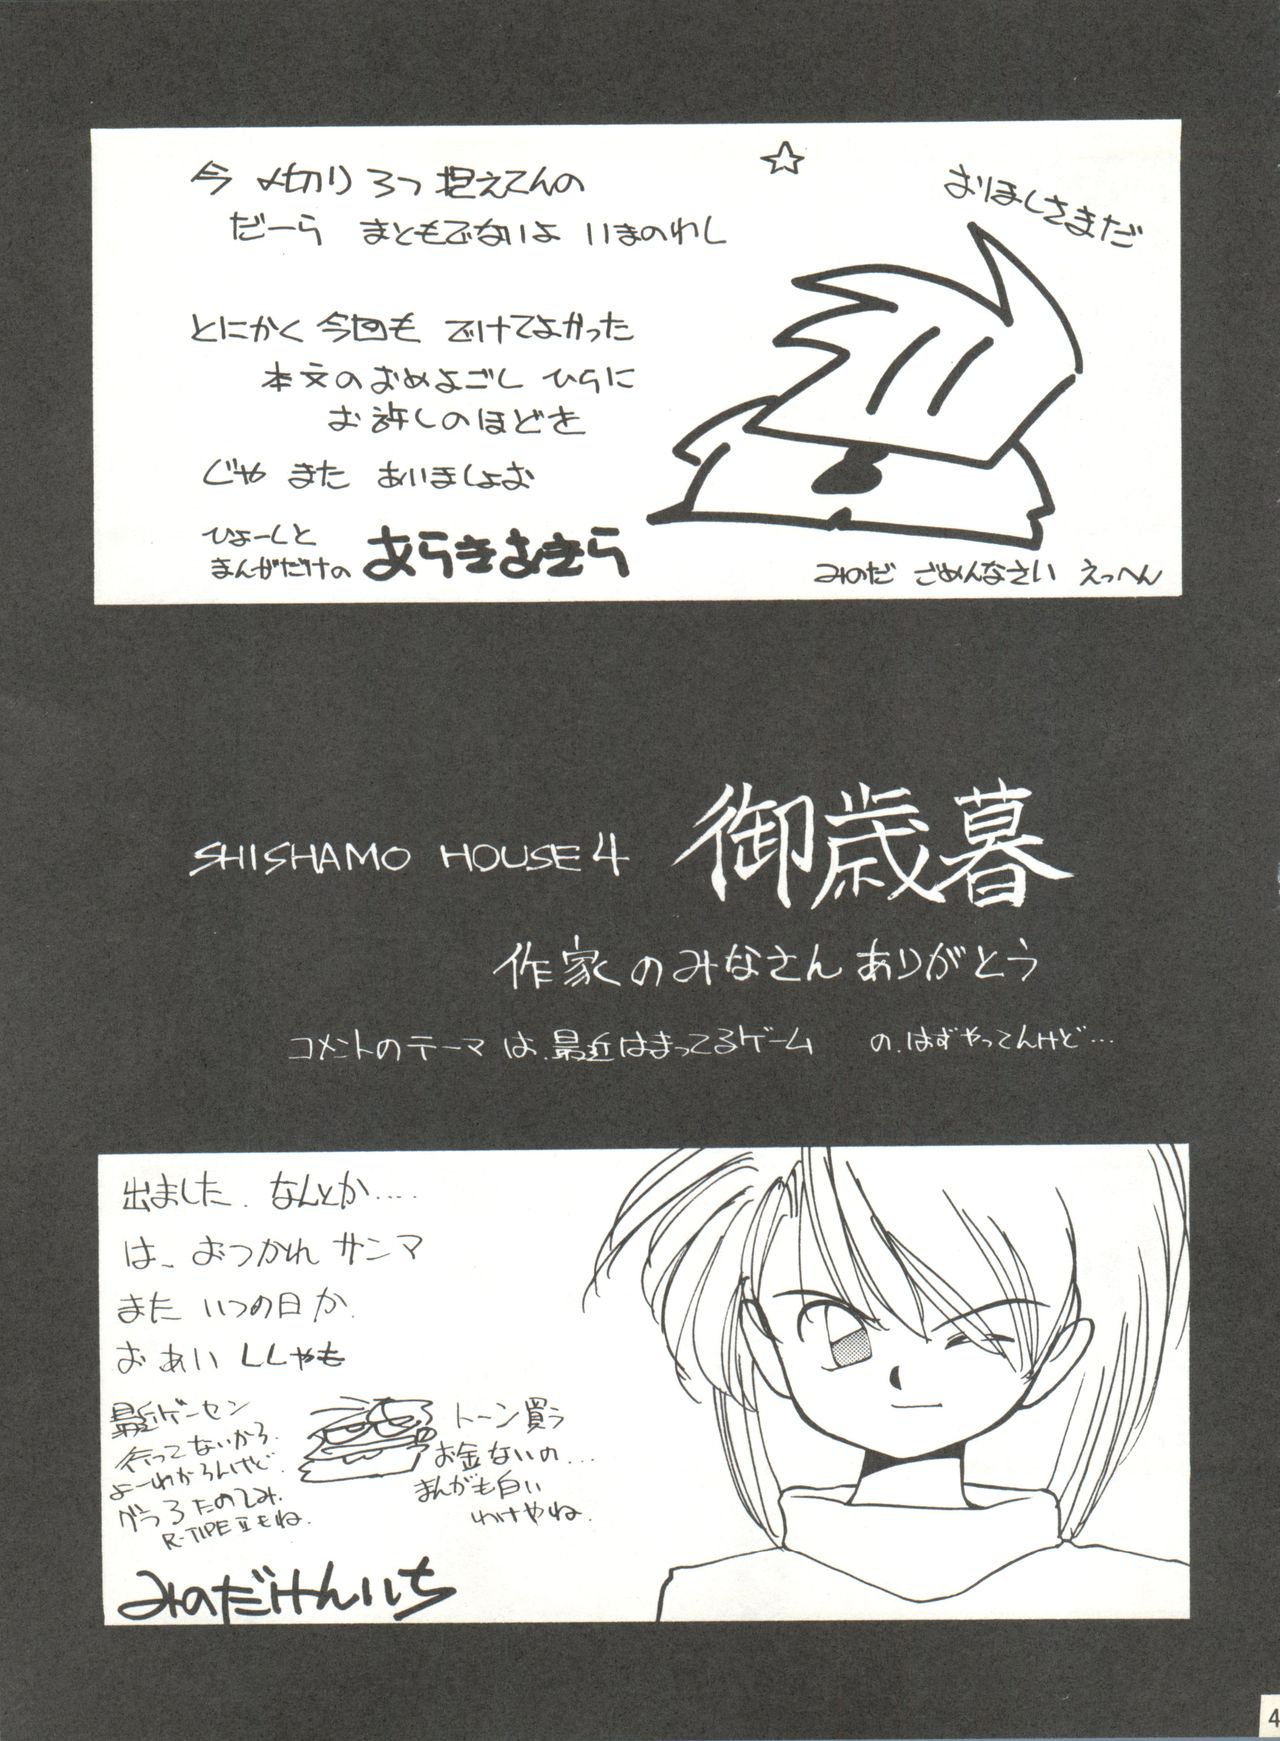 今 〆切り 3つ 抱えてんの
だーら まともでないよ いまのわし
とにかく 今回も でけてよかった
本文のおめよごし ひらに
お許しのほどを
じゃ また あいましょお
ひょーしと
まんがだけの あらきあきら
☆
おほしさまだ
みのだ ごめんなさい えっへん
SHISHAMO HOUSE 4 御歳暮
作家のみなさん ありがとう
コメントのテーマは、最近はまってるゲーム の、はずやってんけど…
出ました、なんとか….
は、おつかれ サンマ
また いつの日か
お あい ししゃも
最近ゲーセン
行ってないから、
よーわからんけど
グラ3たのしみ、
R-TIPE Ⅱもね.
トーン買う
お金ないの…
まんがも白い
わけやね.
みのだけんいち
4